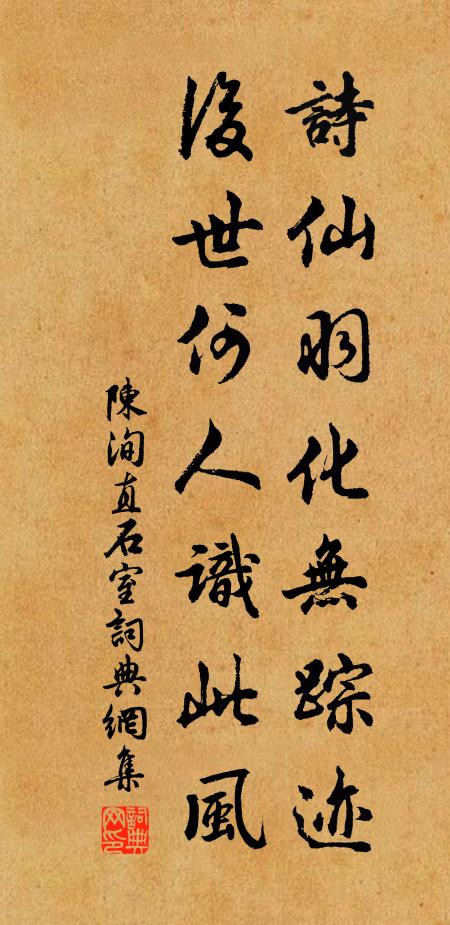 詩仙羽化無踪迹
後世何人識此風
陳洵直石室詞典網集
詞典網印